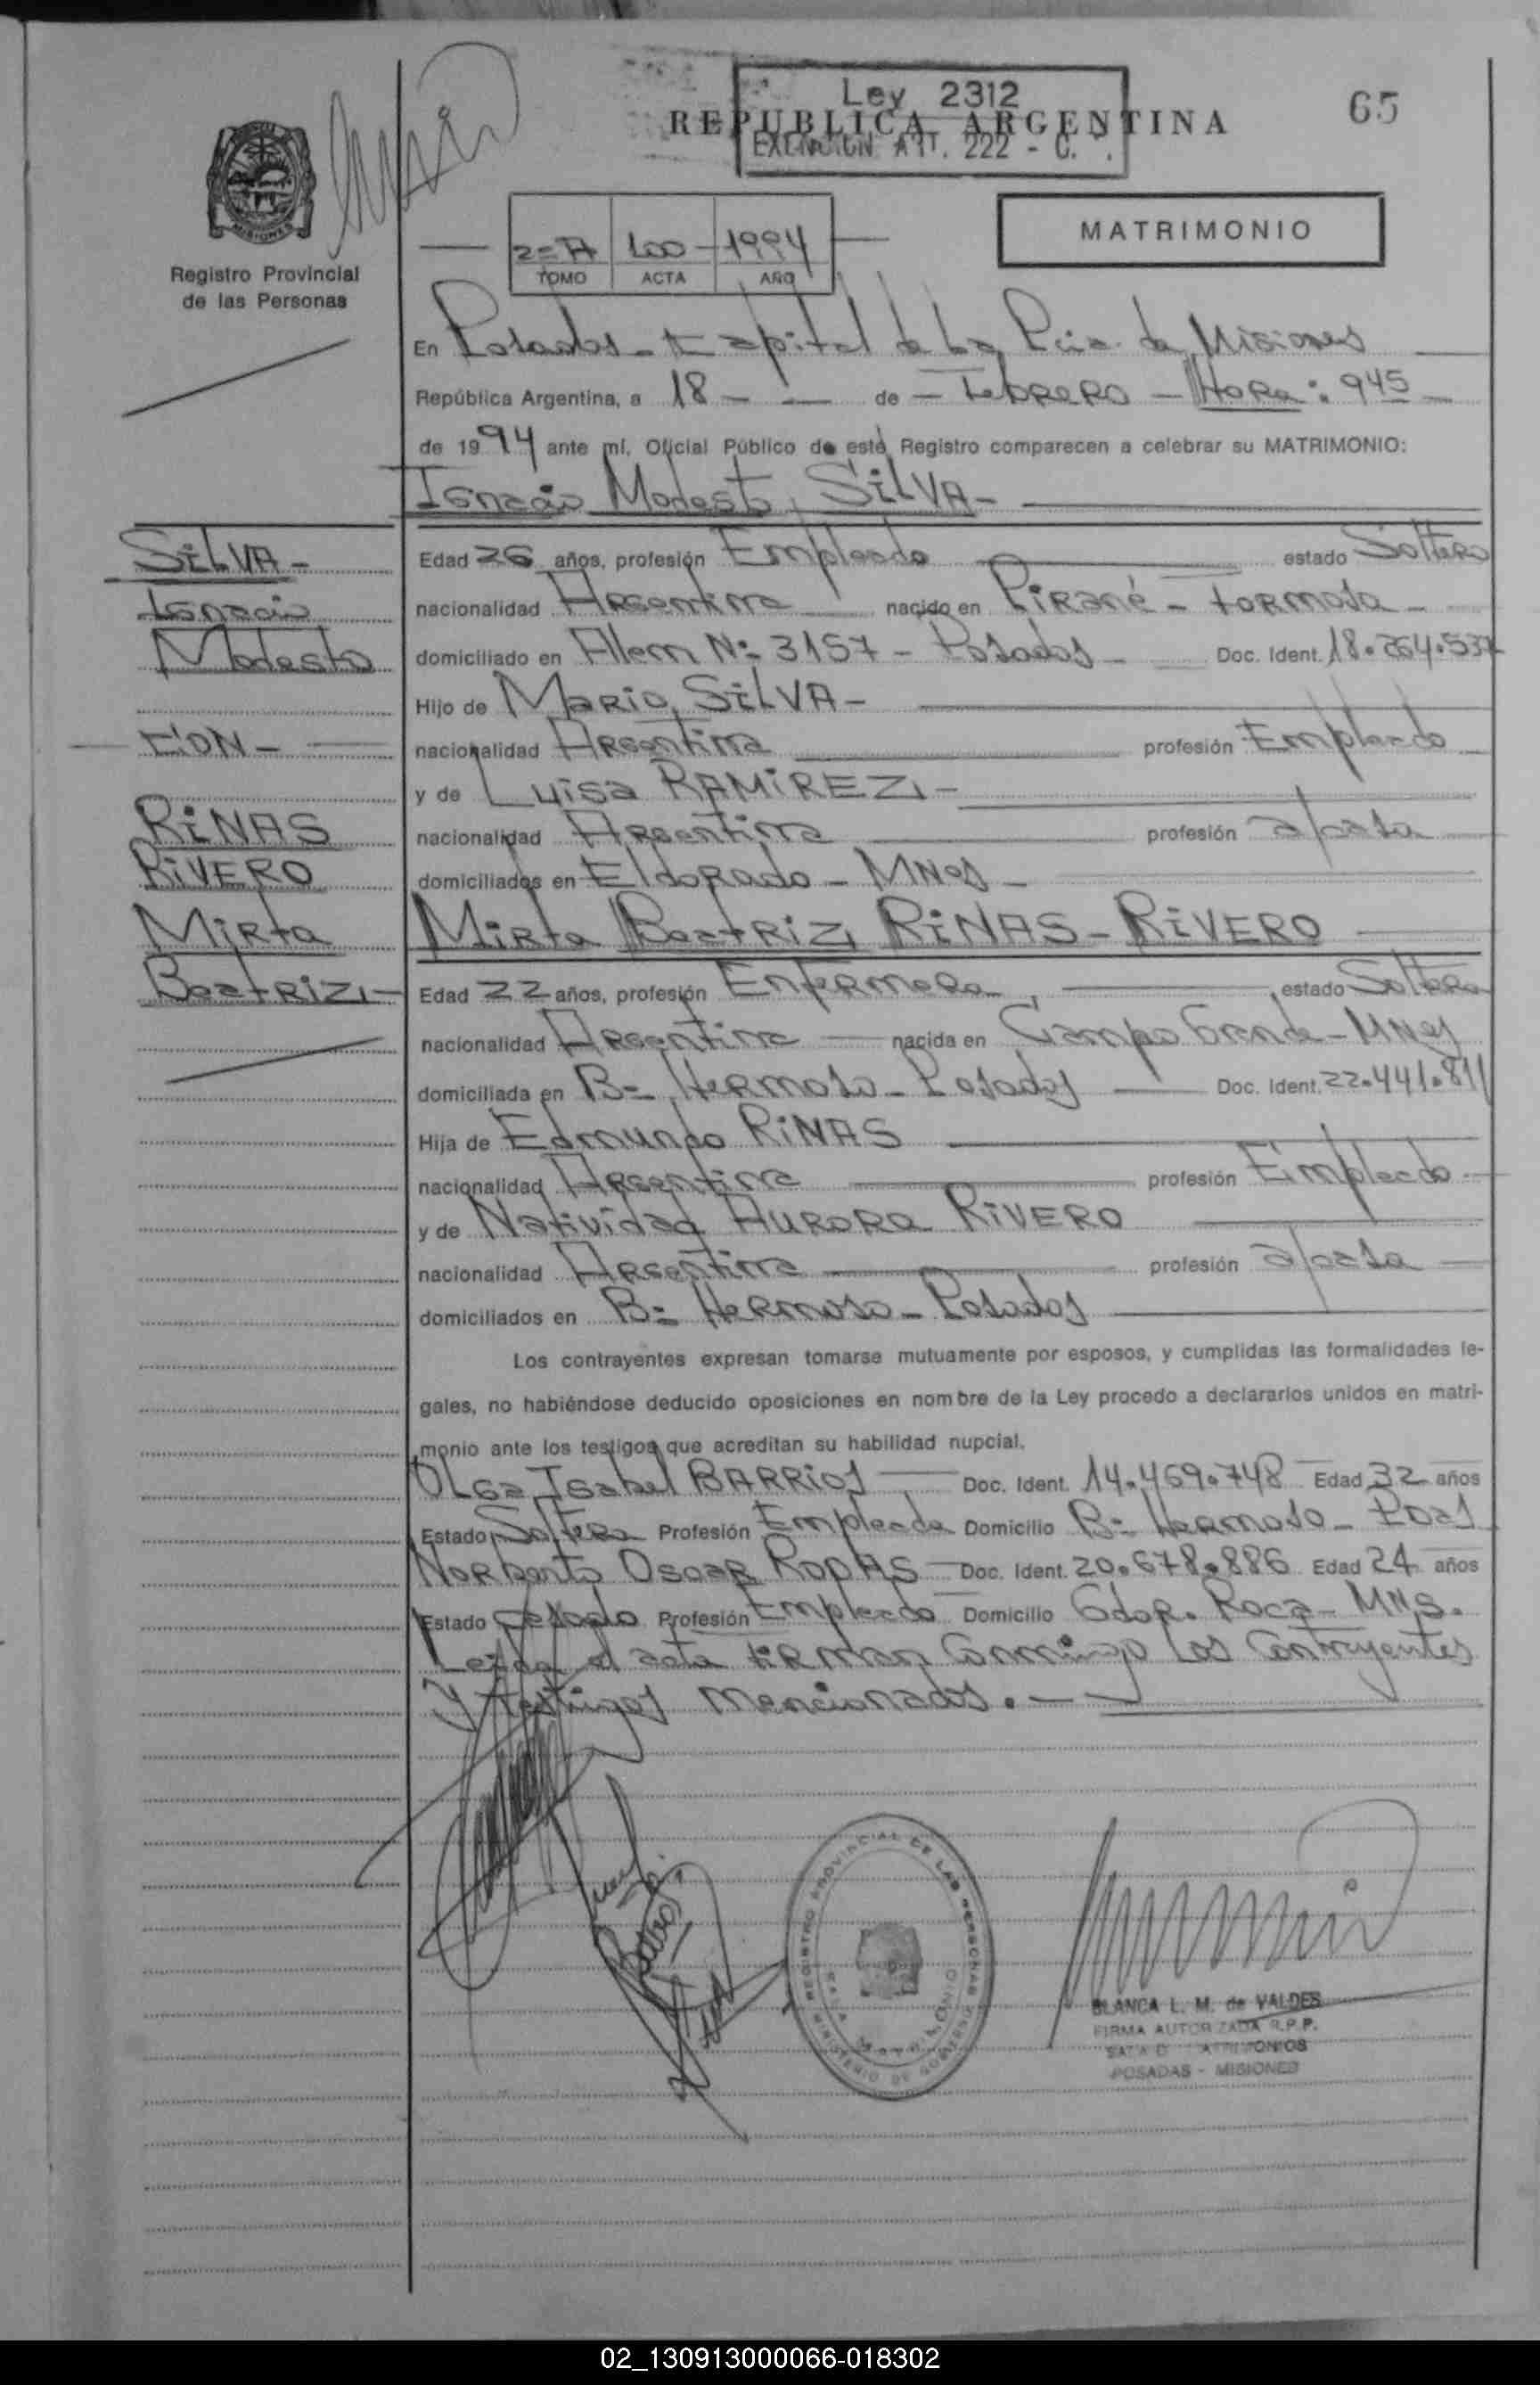 Ley 2312
REPUBLICA ARGENTINA
65
EXENCION ART. 222 - C.
MISIONES
Registro Provincial
de las Personas
2=A 100 - 1994
TOMO ACTA AÑO
MATRIMONIO
En Posadas - Capital de La Pcia. de Misiones
República Argentina, a 18 - - de - Febrero - Hora: 945 -
de 1994 ante mí, Oficial Público de este Registro comparecen a celebrar su MATRIMONIO:
Ignacio Modesto SILVA -
SILVA -
Ignacio
Modesto
CON -
RINAS
RIVERO
Mirta
Beatriz -
Edad 26 años, profesión Empleado estado Soltero
nacionalidad Argentina nacido en Pirané - Formosa -
domiciliado en Alem Nº 3157 - Posadas - Doc. Ident. 18.264.537
Hijo de Mario SILVA -
nacionalidad Argentina profesión Empleado
y de Luisa RAMIREZ -
nacionalidad Argentina profesión a/casa
domiciliados en Eldorado - MNes -
Mirta Beatriz RINAS - RIVERO
Edad 22 años, profesión Enfermera estado Soltera
nacionalidad Argentina nacida en Campo Grande - MNes
domiciliada en Bº Hermoso - Posadas Doc. Ident. 22.441.811
Hija de Edmundo RINAS
nacionalidad Argentina profesión Empleado
y de Natividad Aurora RIVERO
nacionalidad Argentina profesión a/casa
domiciliados en Bº Hermoso - Posadas
Los contrayentes expresan tomarse mutuamente por esposos, y cumplidas las formalidades le-
gales, no habiéndose deducido oposiciones en nombre de la Ley procedo a declararlos unidos en matri-
monio ante los testigos que acreditan su habilidad nupcial.
Olga Isabel BARRIOS Doc. Ident. 14.469.748 Edad 32 años
Estado Soltera Profesión Empleada Domicilio Bº Hermoso - Pdas
Norberto Oscar RODAS Doc. Ident. 20.678.886 Edad 24 años
Estado Casado Profesión Empleado Domicilio Gdor. Roca - MNS.
Leída el acta firman Conmigo Los Contrayentes
Y testigos Mencionados. -
REGISTRO PROVINCIAL DE LAS PERSONAS
SALA MATRIMONIO
MINISTERIO DE GOBIERNO
BLANCA L. M. de VALDES
FIRMA AUTORIZADA R.P.P.
SALA D MATRIMONIOS
POSADAS - MISIONES
02_130913000066-018302